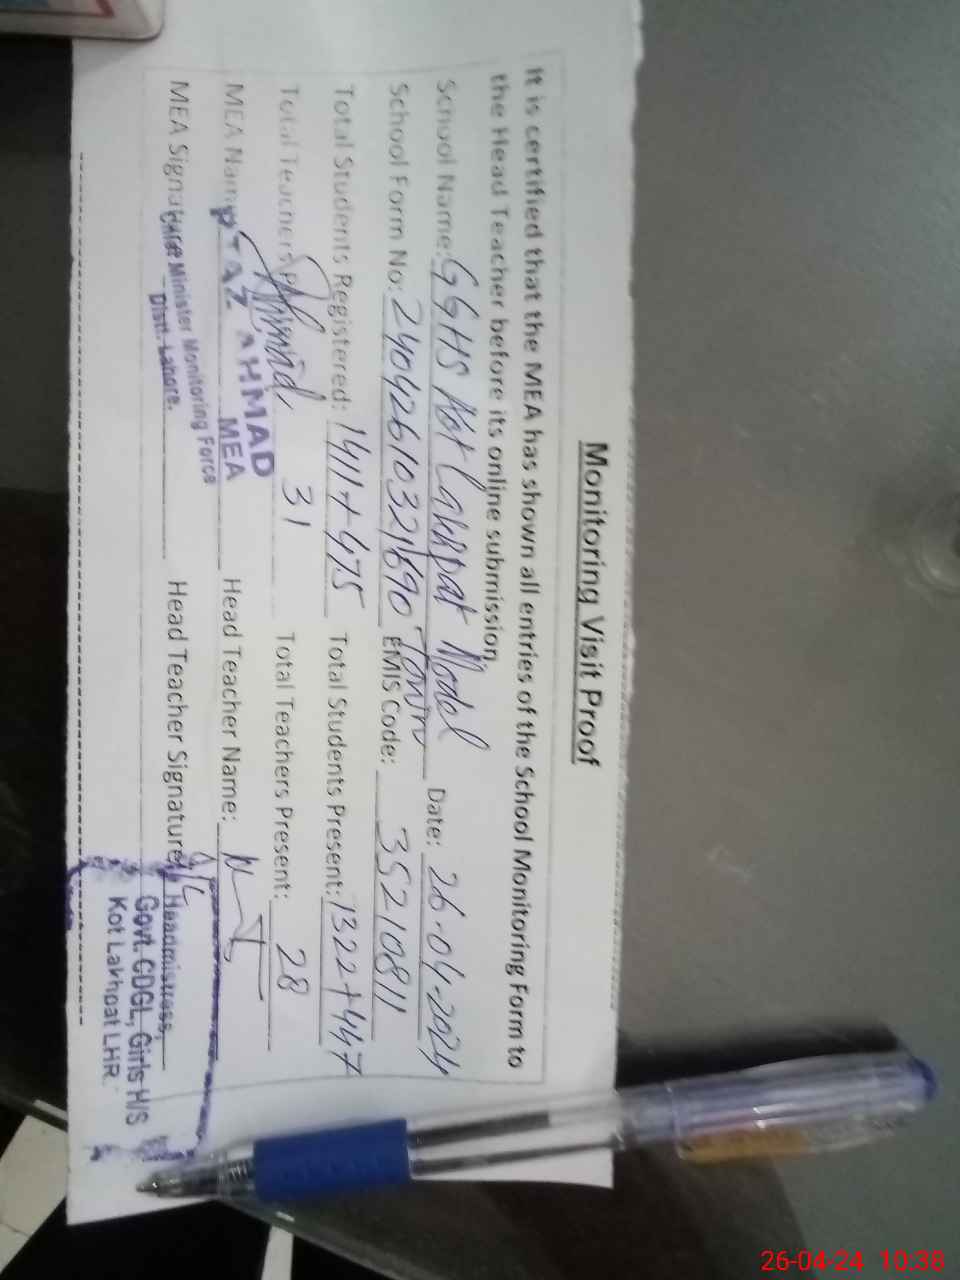 Monitoring Visit Proof
It is certified that the MEA has shown all entries of the School Monitoring Form to
the Head Teacher before its online submission
School Name: GGHS Kot Lakhpat Model Town Date: 26-04-2024
School Form No: EMIS Code: 35210811
Total Students Registered: 1411+475 Total Students Present: 1322+447
Total Teachers 31 Total Teachers Present: 28
MEA Name AHMAD Head Teacher Name:
MEA
MEA Signature Head Teacher Signature
Chief Minister Monitoring Force
Distt. Lahore.
Headmistress,
Govt. CDGL, Girls H/S
Kot Lakhpat LHR.
26-04-24 10:38